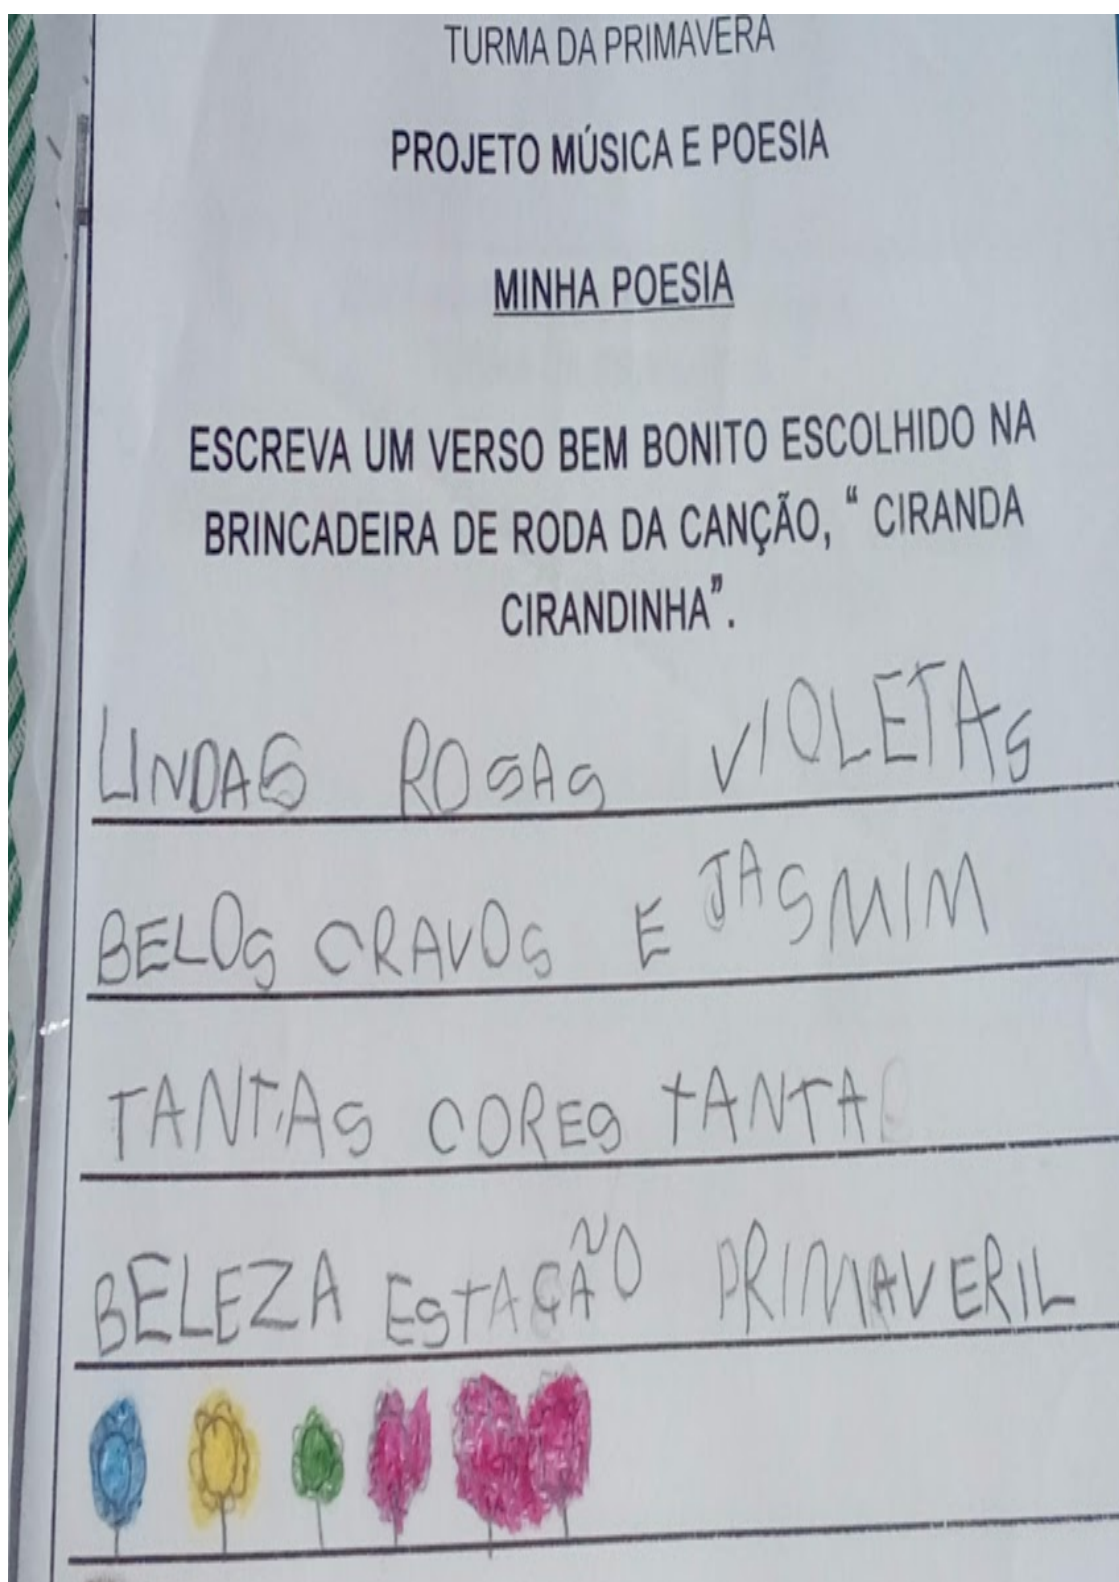 TURMA DA PRIMAVERA
PROJETO MÚSICA E POESIA
MINHA POESIA
ESCREVA UM VERSO BEM BONITO ESCOLHIDO NA
BRINCADEIRA DE RODA DA CANÇÃO, “ CIRANDA
CIRANDINHA”.
LINDAS ROSAS VIOLETAS
BELOS CRAVOS E JASMIM
TANTAS CORES TANTA
BELEZA ESTAÇÃO PRIMAVERIL